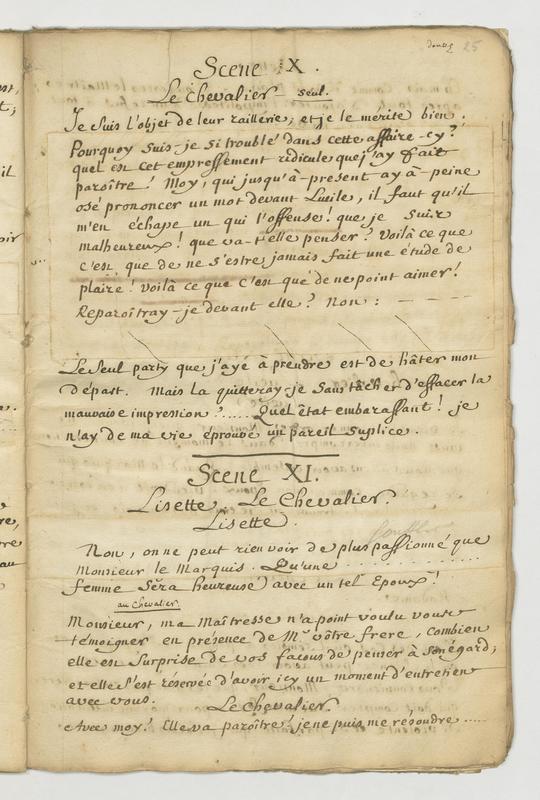 25
Scene X.
Le Chevalier seul.
Je suis l'objet de leur raillerie; et je le mérite bien.
Pourquoy suis-je si troublé dans cette affaire-cy?
quel est cet empressement ridicule que j'ay fait
paroître! Moy, qui jusqu'à-present ay à-peine
osé prononcer un mot devant Lucile, il faut qu'il
m'en échape un qui l'offense! que je suis
malheureux! que va-t-elle penser? Voilà ce que
c'est que de ne s'estre jamais fait une étude de
plaire! voilà ce que c'est que de ne point aimer!
Reparoîtray-je devant elle? Non : — — —
Le seul party que j'aye à prendre est de hâter mon
départ. Mais la quitteray-je sans tâcher d'effacer la
mauvaise impression?...... Quel état embarassant! je
n'ay de ma vie éprouvé un pareil suplice.
Scene XI.
Lisette, Le Chevalier.
Lisette.
Non, on ne peut rien voir de plus passionné que
Monsieur le Marquis. Qu'une ..............
femme sera heureuse) avec un tel Epoux!
au Chevalier.
Monsieur, ma Maîtresse n'a point voulu vous
témoigner en présence de Mr. vôtre frere, combien
elle est surprise de vos façons de penser à son égard;
et elle s'est réservée d'avoir icy un moment d'entretien
avec vous.
Le Chevalier.
Avec moy! Elle va paroître! je ne puis me résoudre .....